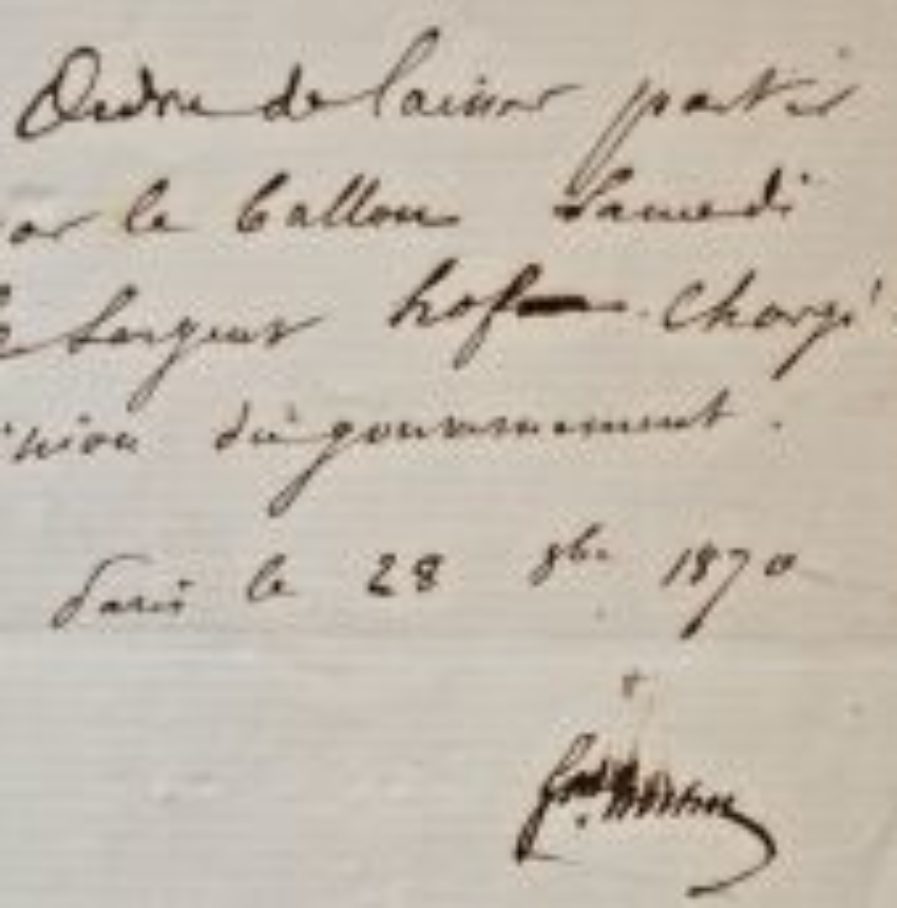 Ordre de laisser partir
par le ballon Samedi
le Sergent hof Chargé
du gouvernement.
Paris le 28 8bre 1870